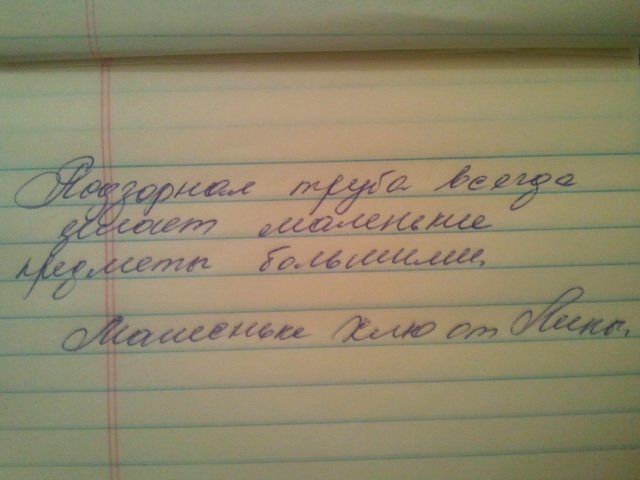 Подзорная труба всегда
делает маленькие
предметы большими
Машеньке от